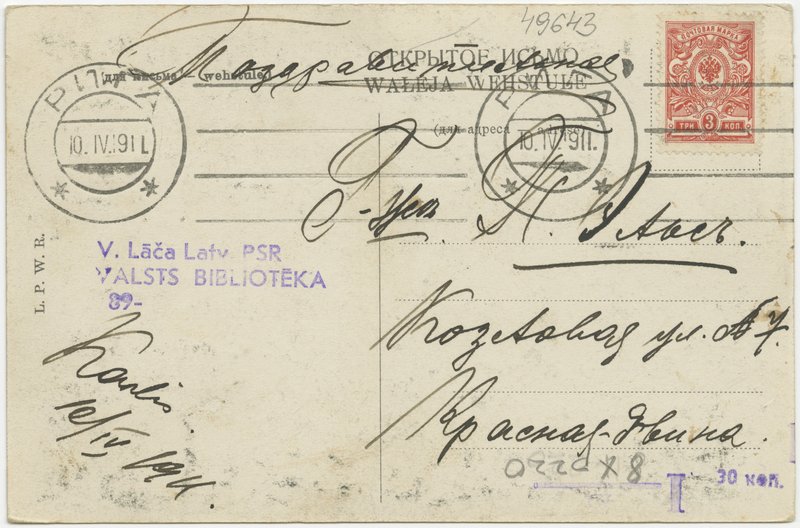 49643
ОТКРЫТОЕ ПИСЬМО
WALĒJA WEHSTULE
(для письма — wehstulei)
(для адреса — adresei)
ПОЧТОВАЯ МАРКА
3
ТРИ КОП.
РИГА
10.IV.1911.
РИГА
10.IV.1911.
Г-жа М. Эльсъ.
L. P. W. R.
V. Lāča Latv. PSR
VALSTS BIBLIOTĒKA
89-
Козловая ул. № 7.
Красная-Двина.
Karlis
10/IV 1911.
30 коп.